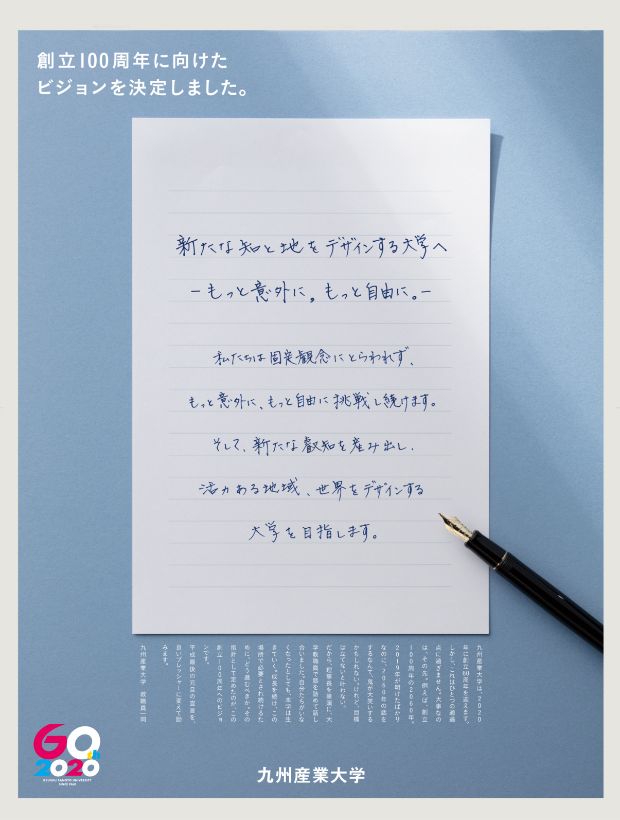 創立100周年に向けた
ビジョンを決定しました。
新たな知と地をデザインする大学へ
－もっと意外に。もっと自由に。－
私たちは固定観念にとらわれず、
もっと意外に、もっと自由に挑戦し続けます。
そして、新たな叡知を産み出し、
活力ある地域、世界をデザインする
大学を目指します。
九州産業大学は、2020
年に創立60周年を迎えます。
しかし、これはひとつの通過
点に過ぎません。大事なの
は、その先。例えば、創立
100周年の2060年。
2019年が明けたばかり
なのに、2060年の話を
するなんて、鬼が大笑いする
かもしれない。けれど、目標
は立てないと叶わない。
だから、理事長を筆頭に、大
学教職員で膝を詰めて話し
合いました。自分たちがいな
くなったとしても、本学は生
きていく。成長を続け、この
場所で必要とされ続けるた
めに、どう進むべきか。その
指針として定めたのが、この
創立100周年へのビジョ
ンです。
平成最後の元旦の宣言を、
良いプレッシャーに変えて励
みます。
九州産業大学 教職員一同
60th
2020
KYUSHU SANGYO UNIVERSITY
SINCE 1960
九州産業大学